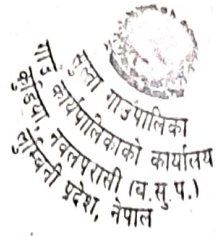 गाउँपालिका
गाउँ कार्यपालिकाको कार्यालय
नवलपरासी (ब.सु.प.)
लुम्बिनी प्रदेश, नेपाल